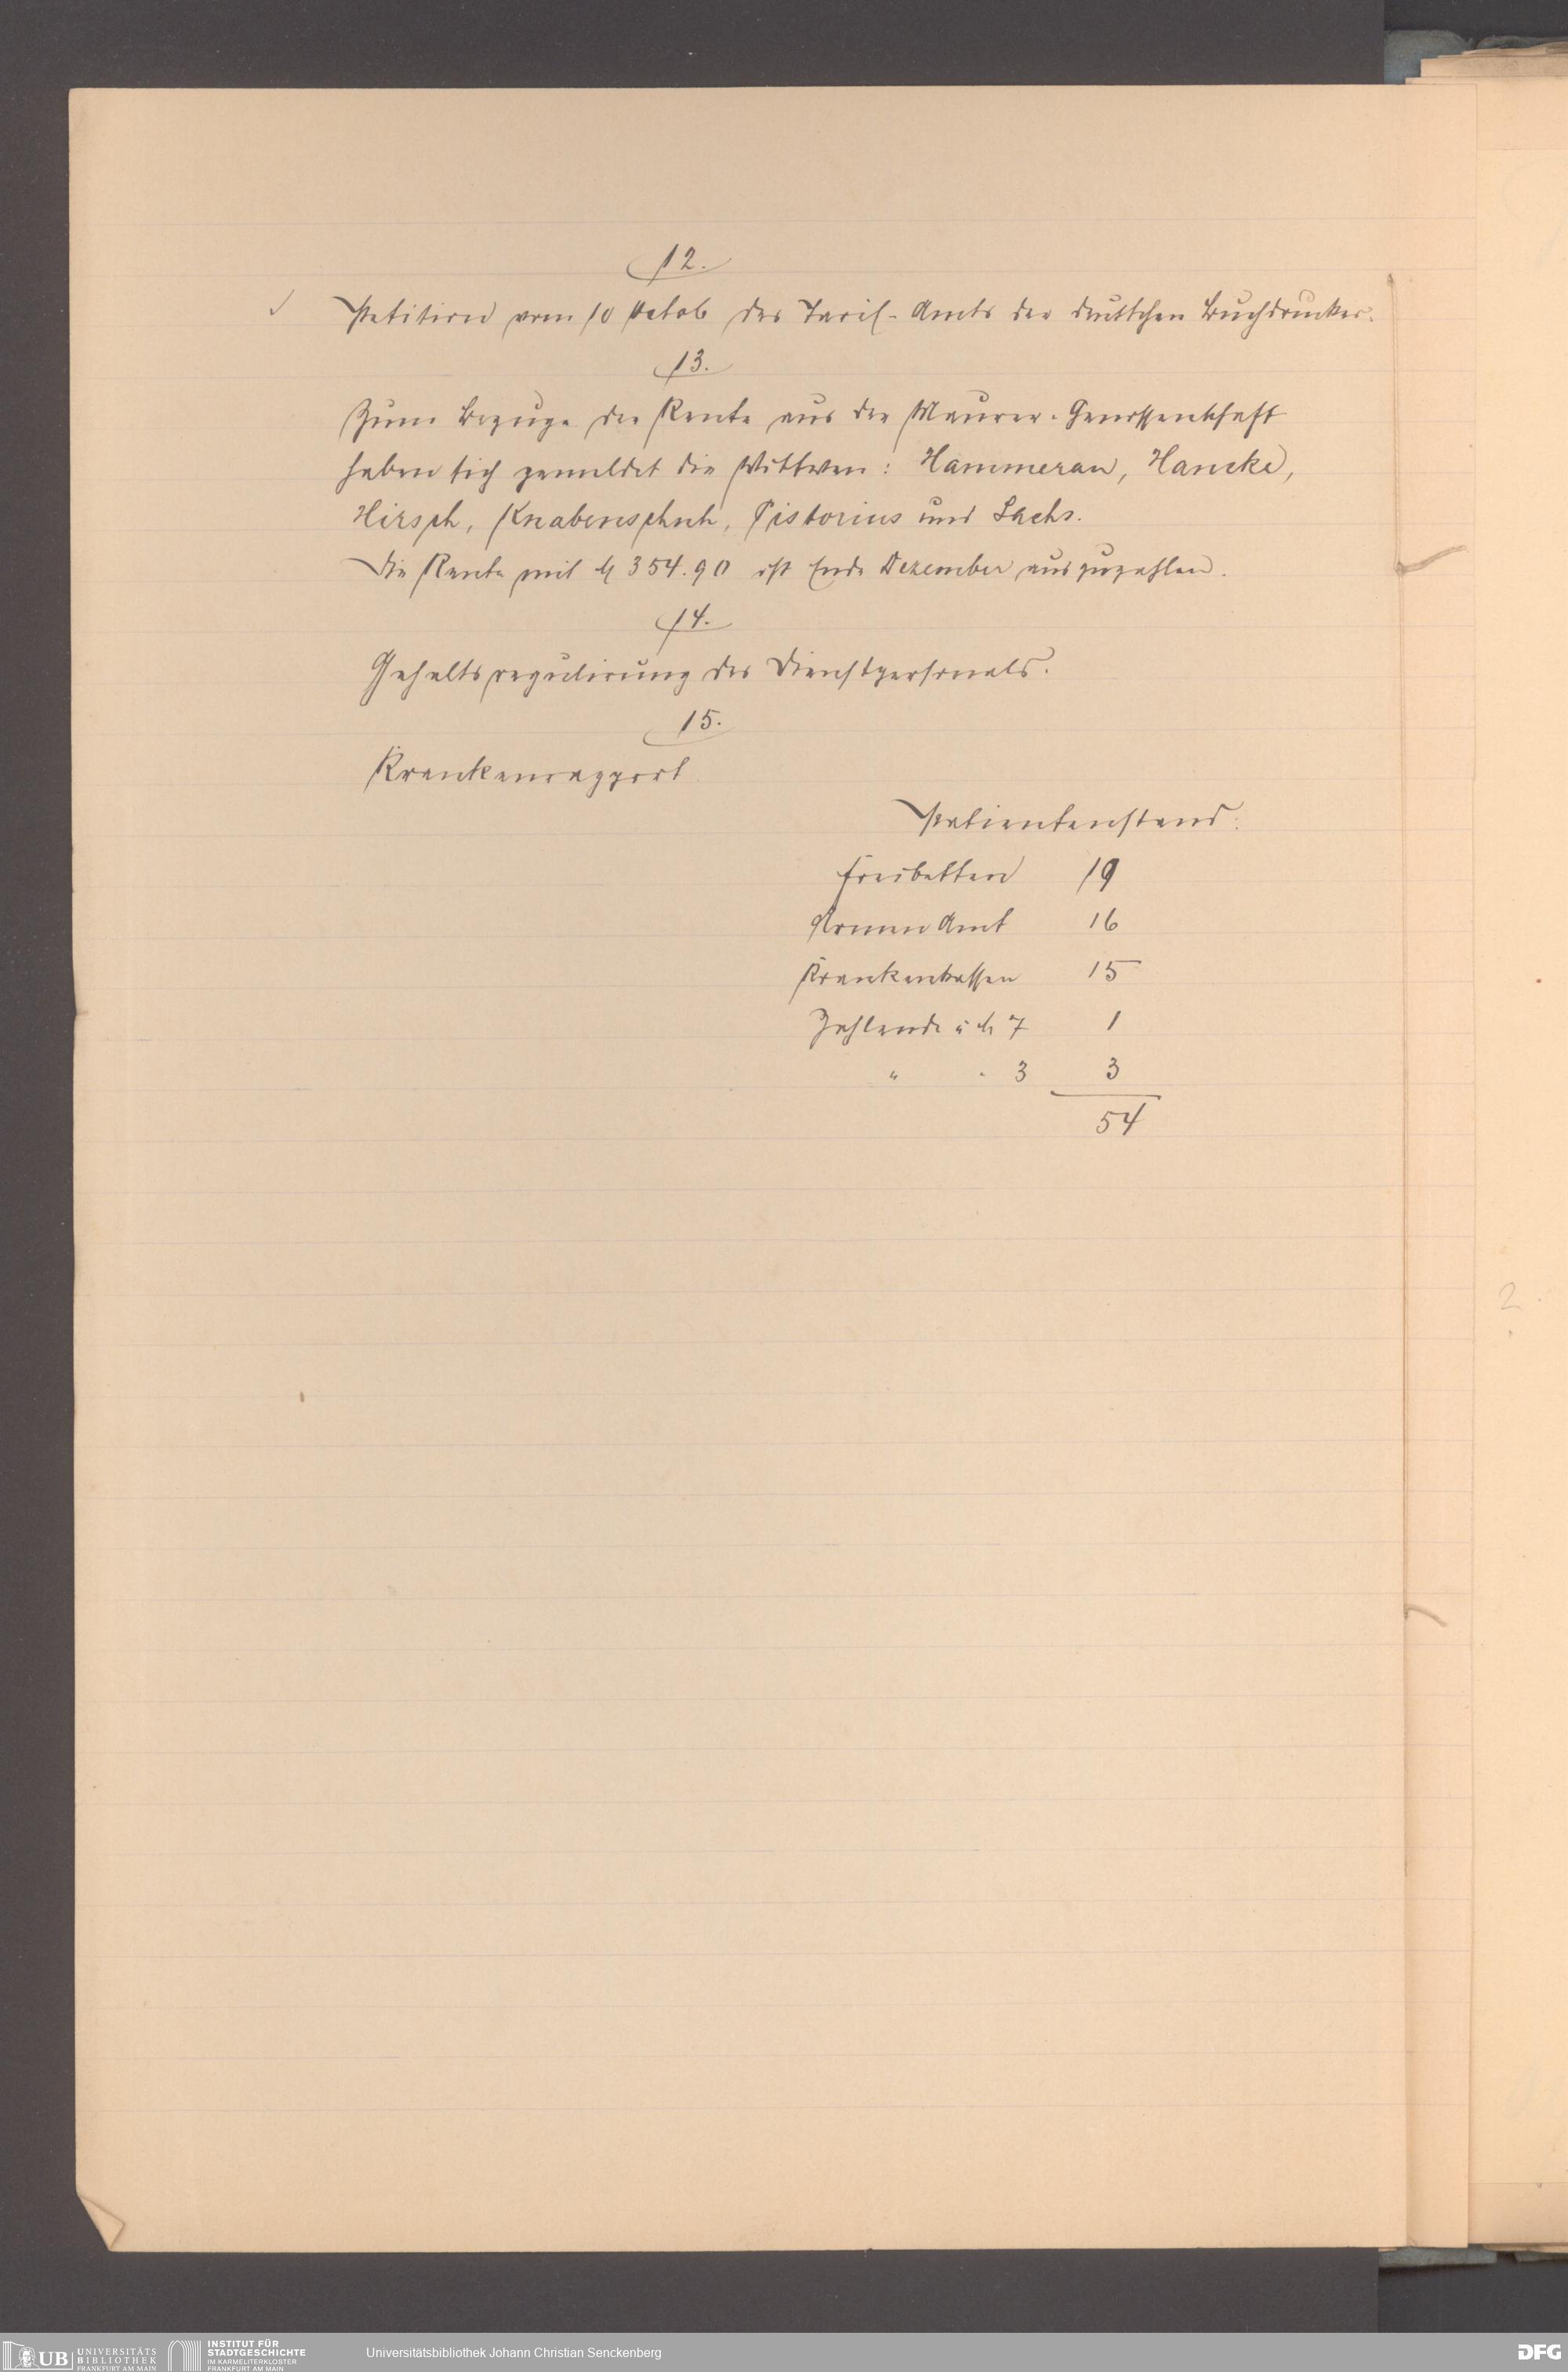 12.
Petition vom 10 Octob des Tarif-Amts der deutschen Buchdrucker.
13.
Zum Bezuge der Rente aus der Maurer-Genossenschaft
haben sich gemeldet die Wittwen: Hammeran, Hancke,
Hirsch, Knabenschuh, Pistorius und Sachs.
Die Rente mit M 354.90 ist Ende Dezember auszuzahlen.
14.
Gehaltsregulirung des Dienstpersonals.
15.
Krankenrapport
Patientenstand:
Freibetten 19
Armen Amt 16
Krankenkassen 15
Zahlende à M 7 1
" " 3 3
54
2
UB UNIVERSITÄTS
BIBLIOTHEK
FRANKFURT AM MAIN
INSTITUT FÜR
STADTGESCHICHTE
IM KARMELITERKLOSTER
FRANKFURT AM MAIN
Universitätsbibliothek Johann Christian Senckenberg
DFG